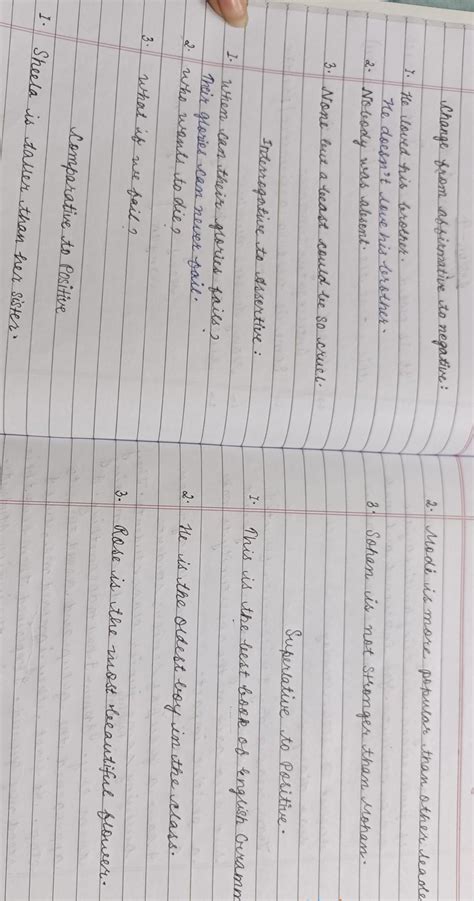 Change from affirmative to negative:
1. He loved his brother.
He doesn't love his brother.
2. Nobody was absent.
3. None but a beast could be so cruel.
Interrogative to Assertive:
1. When can their glories fails?
Their glories can never fail.
2. Who wants to die?
3. What if we fail?
Comparative to Positive
1. Sheela is taller than her sister.
2. Modi is more popular than other leade
3. Sohan is not stronger than Mohan.
Superlative to Positive.
1. This is the best book of English Gramm
2. He is the oldest boy in the class.
3. Rose is the most beautiful flower.